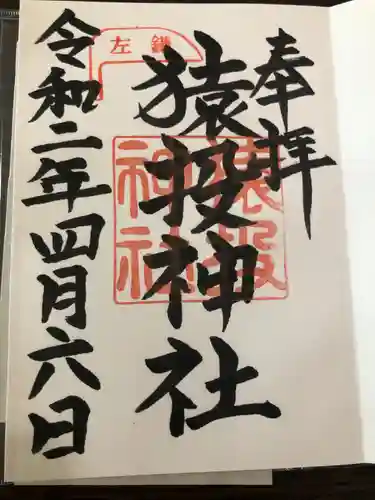 奉拝
猿投神社
令和二年四月六日
左鎌
猿投
神社